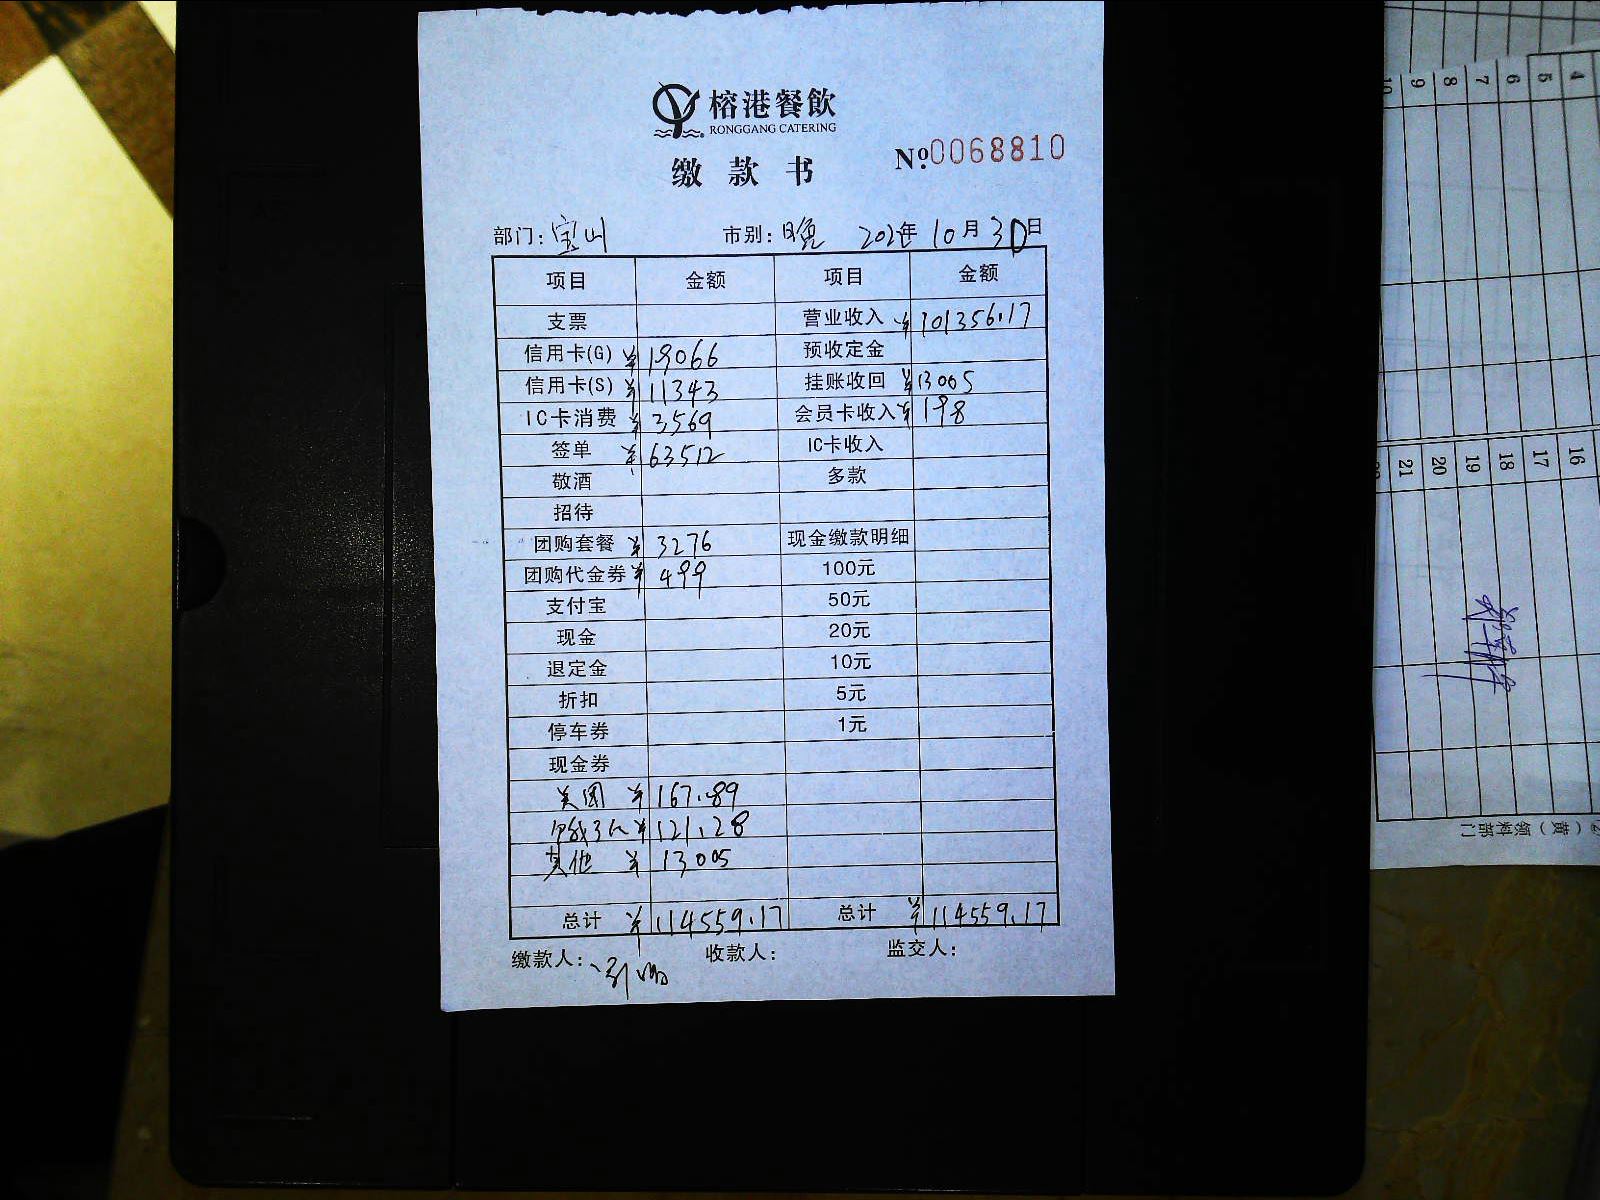 榕港餐飲
RONGGANG CATERING
缴款书
№ 0068810
部门：宝山 市别：晚 202 年 10月30日
项目 金额 项目 金额
支票 营业收入 ¥101356.17
信用卡(G) ¥19066 预收定金
信用卡(S) ¥11343 挂账收回 ¥13005
IC卡消费 ¥3569 会员卡收入 ¥198
签单 ¥63512 IC卡收入
敬酒 多款
招待
团购套餐 ¥3276 现金缴款明细
团购代金券 ¥499 100元
支付宝 50元
现金 20元
退定金 10元
折扣 5元
停车券 1元
现金券
美团 ¥167.89
饿了么 ¥121.28
其他 ¥13005
总计 ¥114559.17 总计 ¥114559.17
缴款人： 收款人： 监交人：
4
5
6
7
8
9
10
16
17
18
19
20
21
（黄）领料部门